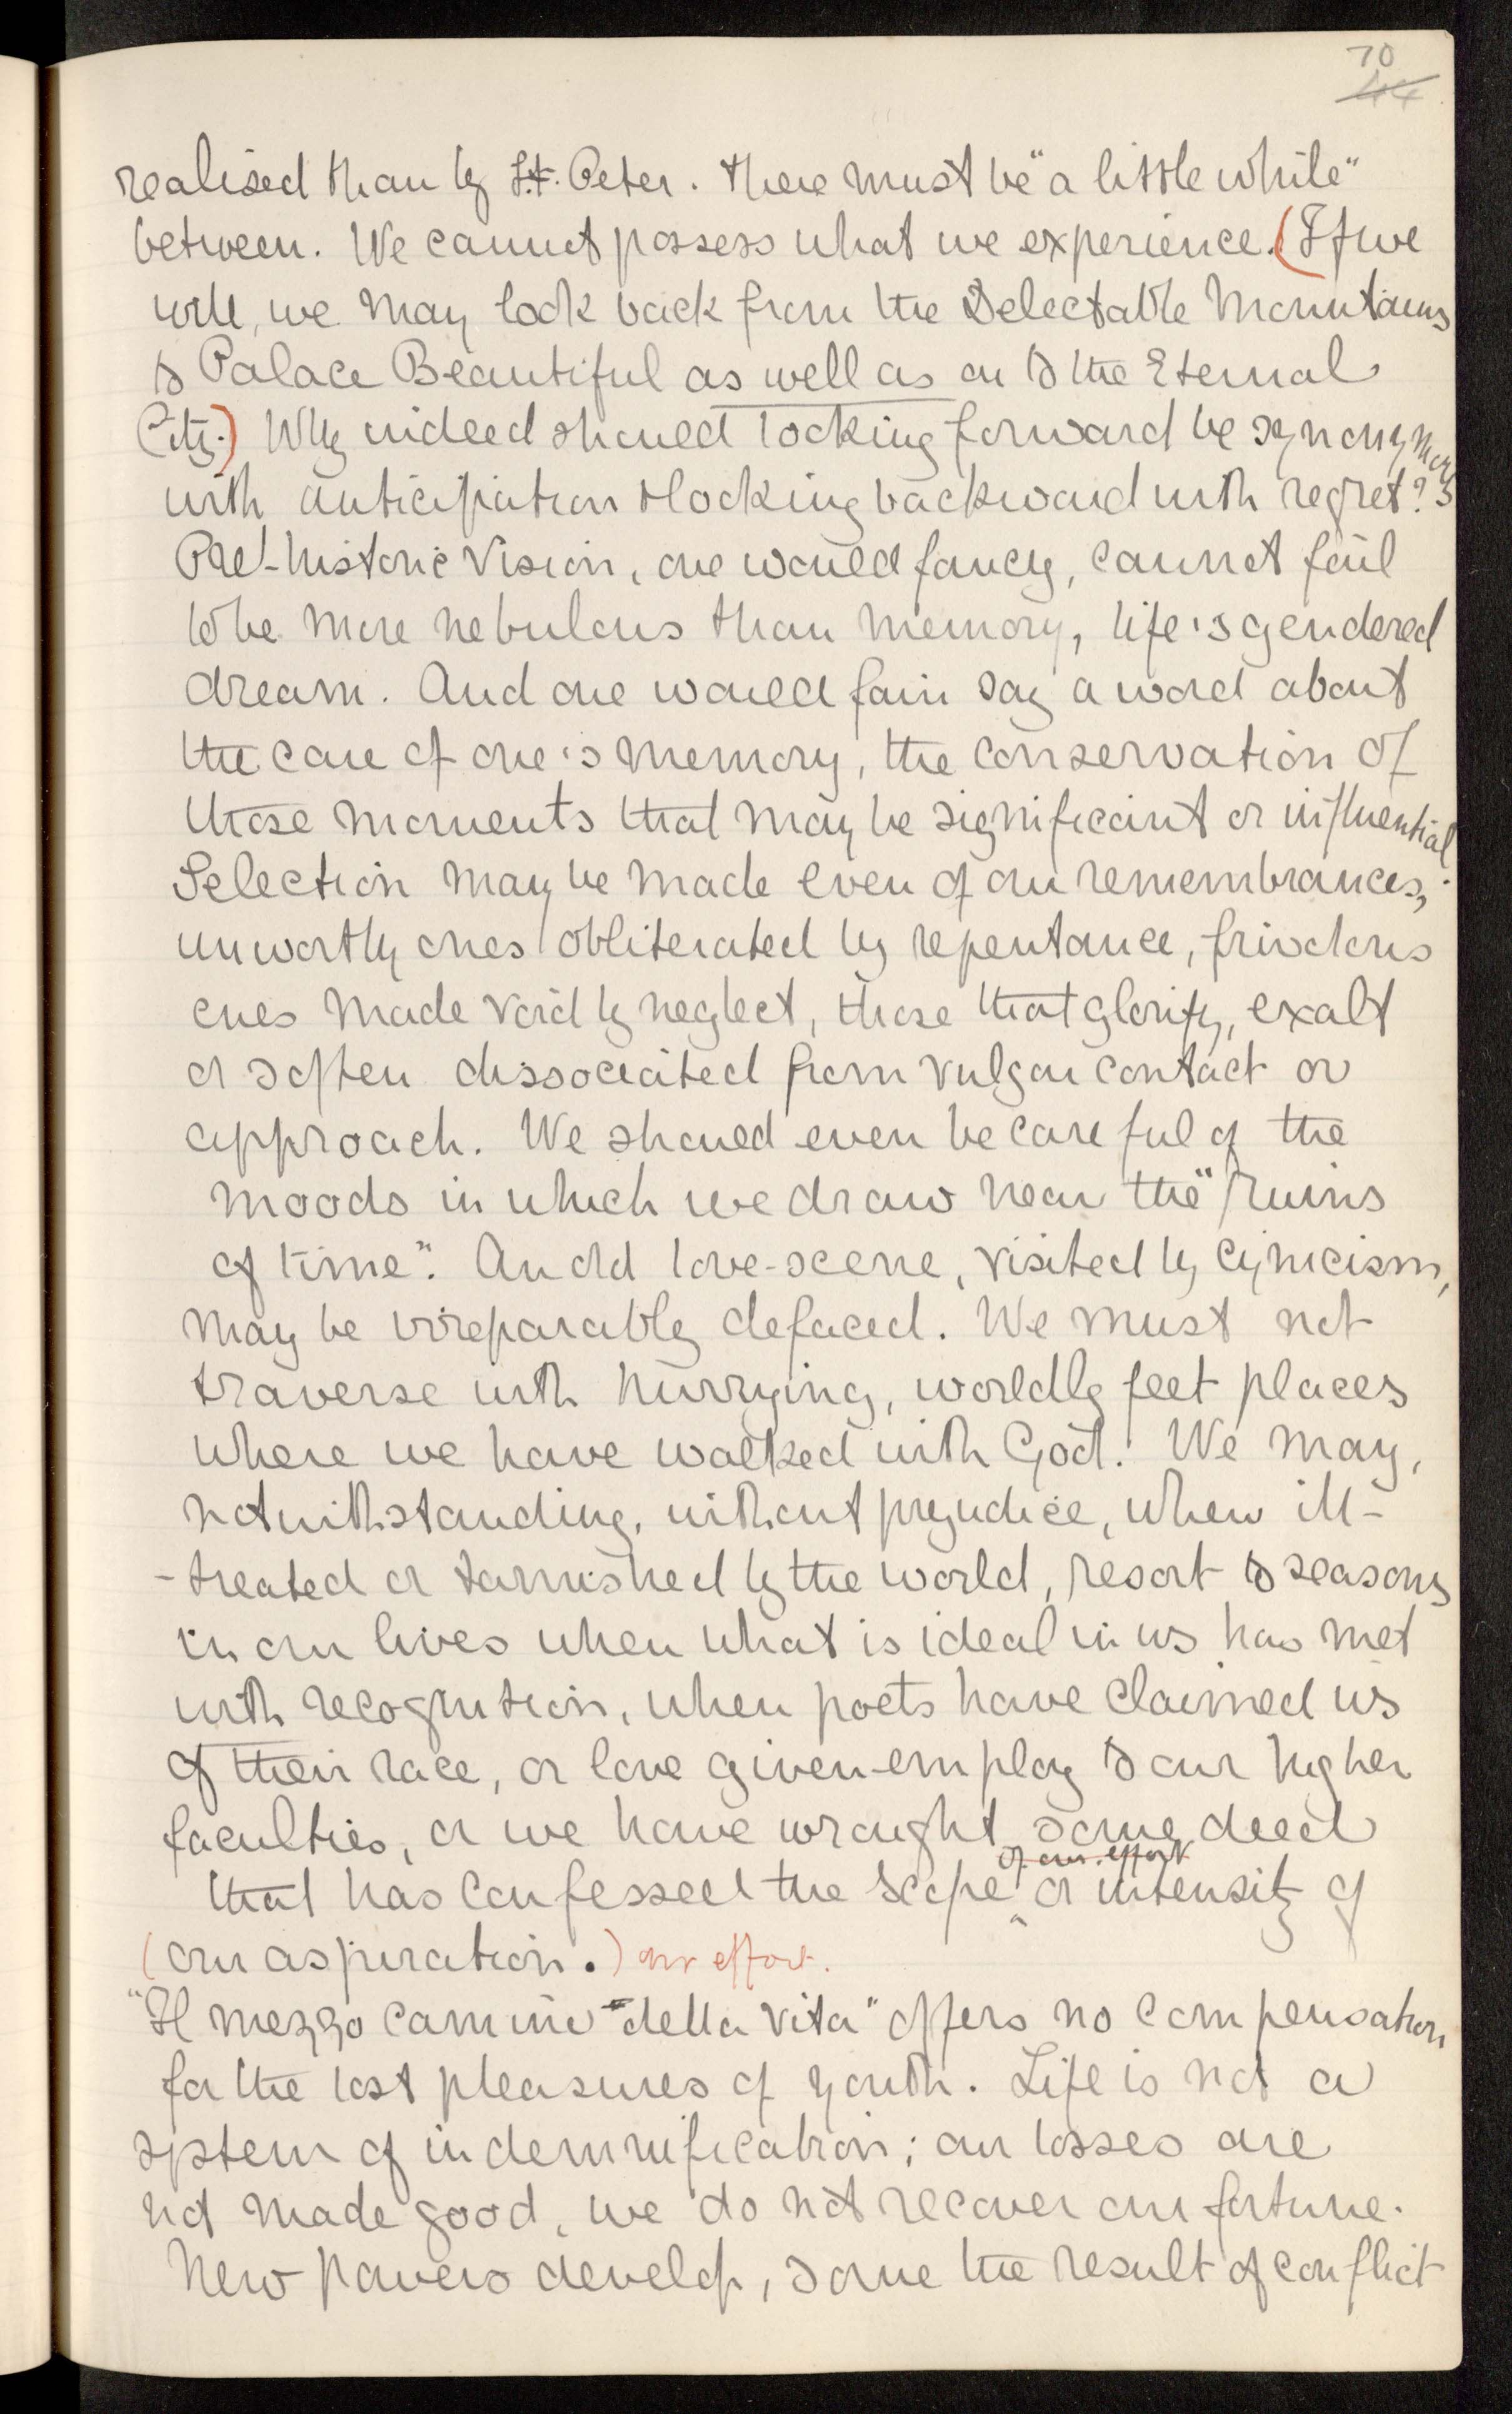 70
44
realised than by St. Peter. There must be "a little while"
between. We cannot possess what we experience. (If we
will, we may look back from the Delectable Mountains
to Palace Beautiful as well as on to the Eternal
City.) Why indeed should looking forward be synonymous
with anticipation & looking backward with regret?
Pre-historic vision, one would fancy, cannot fail
to be more nebulous than memory, life's gendered
dream. And one would fain say a word about
the care of one's memory, the conservation of
those moments that may be significant or influential.
Selection may be made even of our remembrances,
unworthy ones obliterated by repentance, frivolous
ones made void by neglect, those that glorify, exalt
or soften dissociated from vulgar contact or
approach. We should even be careful of the
moods in which we draw near the "ruins
of time". An old love-scene, visited by cynicism,
may be irreparably defaced. We must not
traverse with hurrying, worldly feet places
where we have walked with God. We may,
notwithstanding, without prejudice, when ill-
-treated or tarnished by the world, resort to seasons
in our lives when what is ideal in us has met
with recognition, when poets have claimed us
of their race, or love given employ to our higher
faculties, or we have wrought some deed
of our effort
that has confessed the scope or intensity of
(our aspiration.) our effort.
"Il mezzo cammin della vita" offers no compensation
for the lost pleasures of youth. Life is not a
system of indemnification; our losses are
not made good, we do not recover our fortune.
New powers develop, some the result of conflict